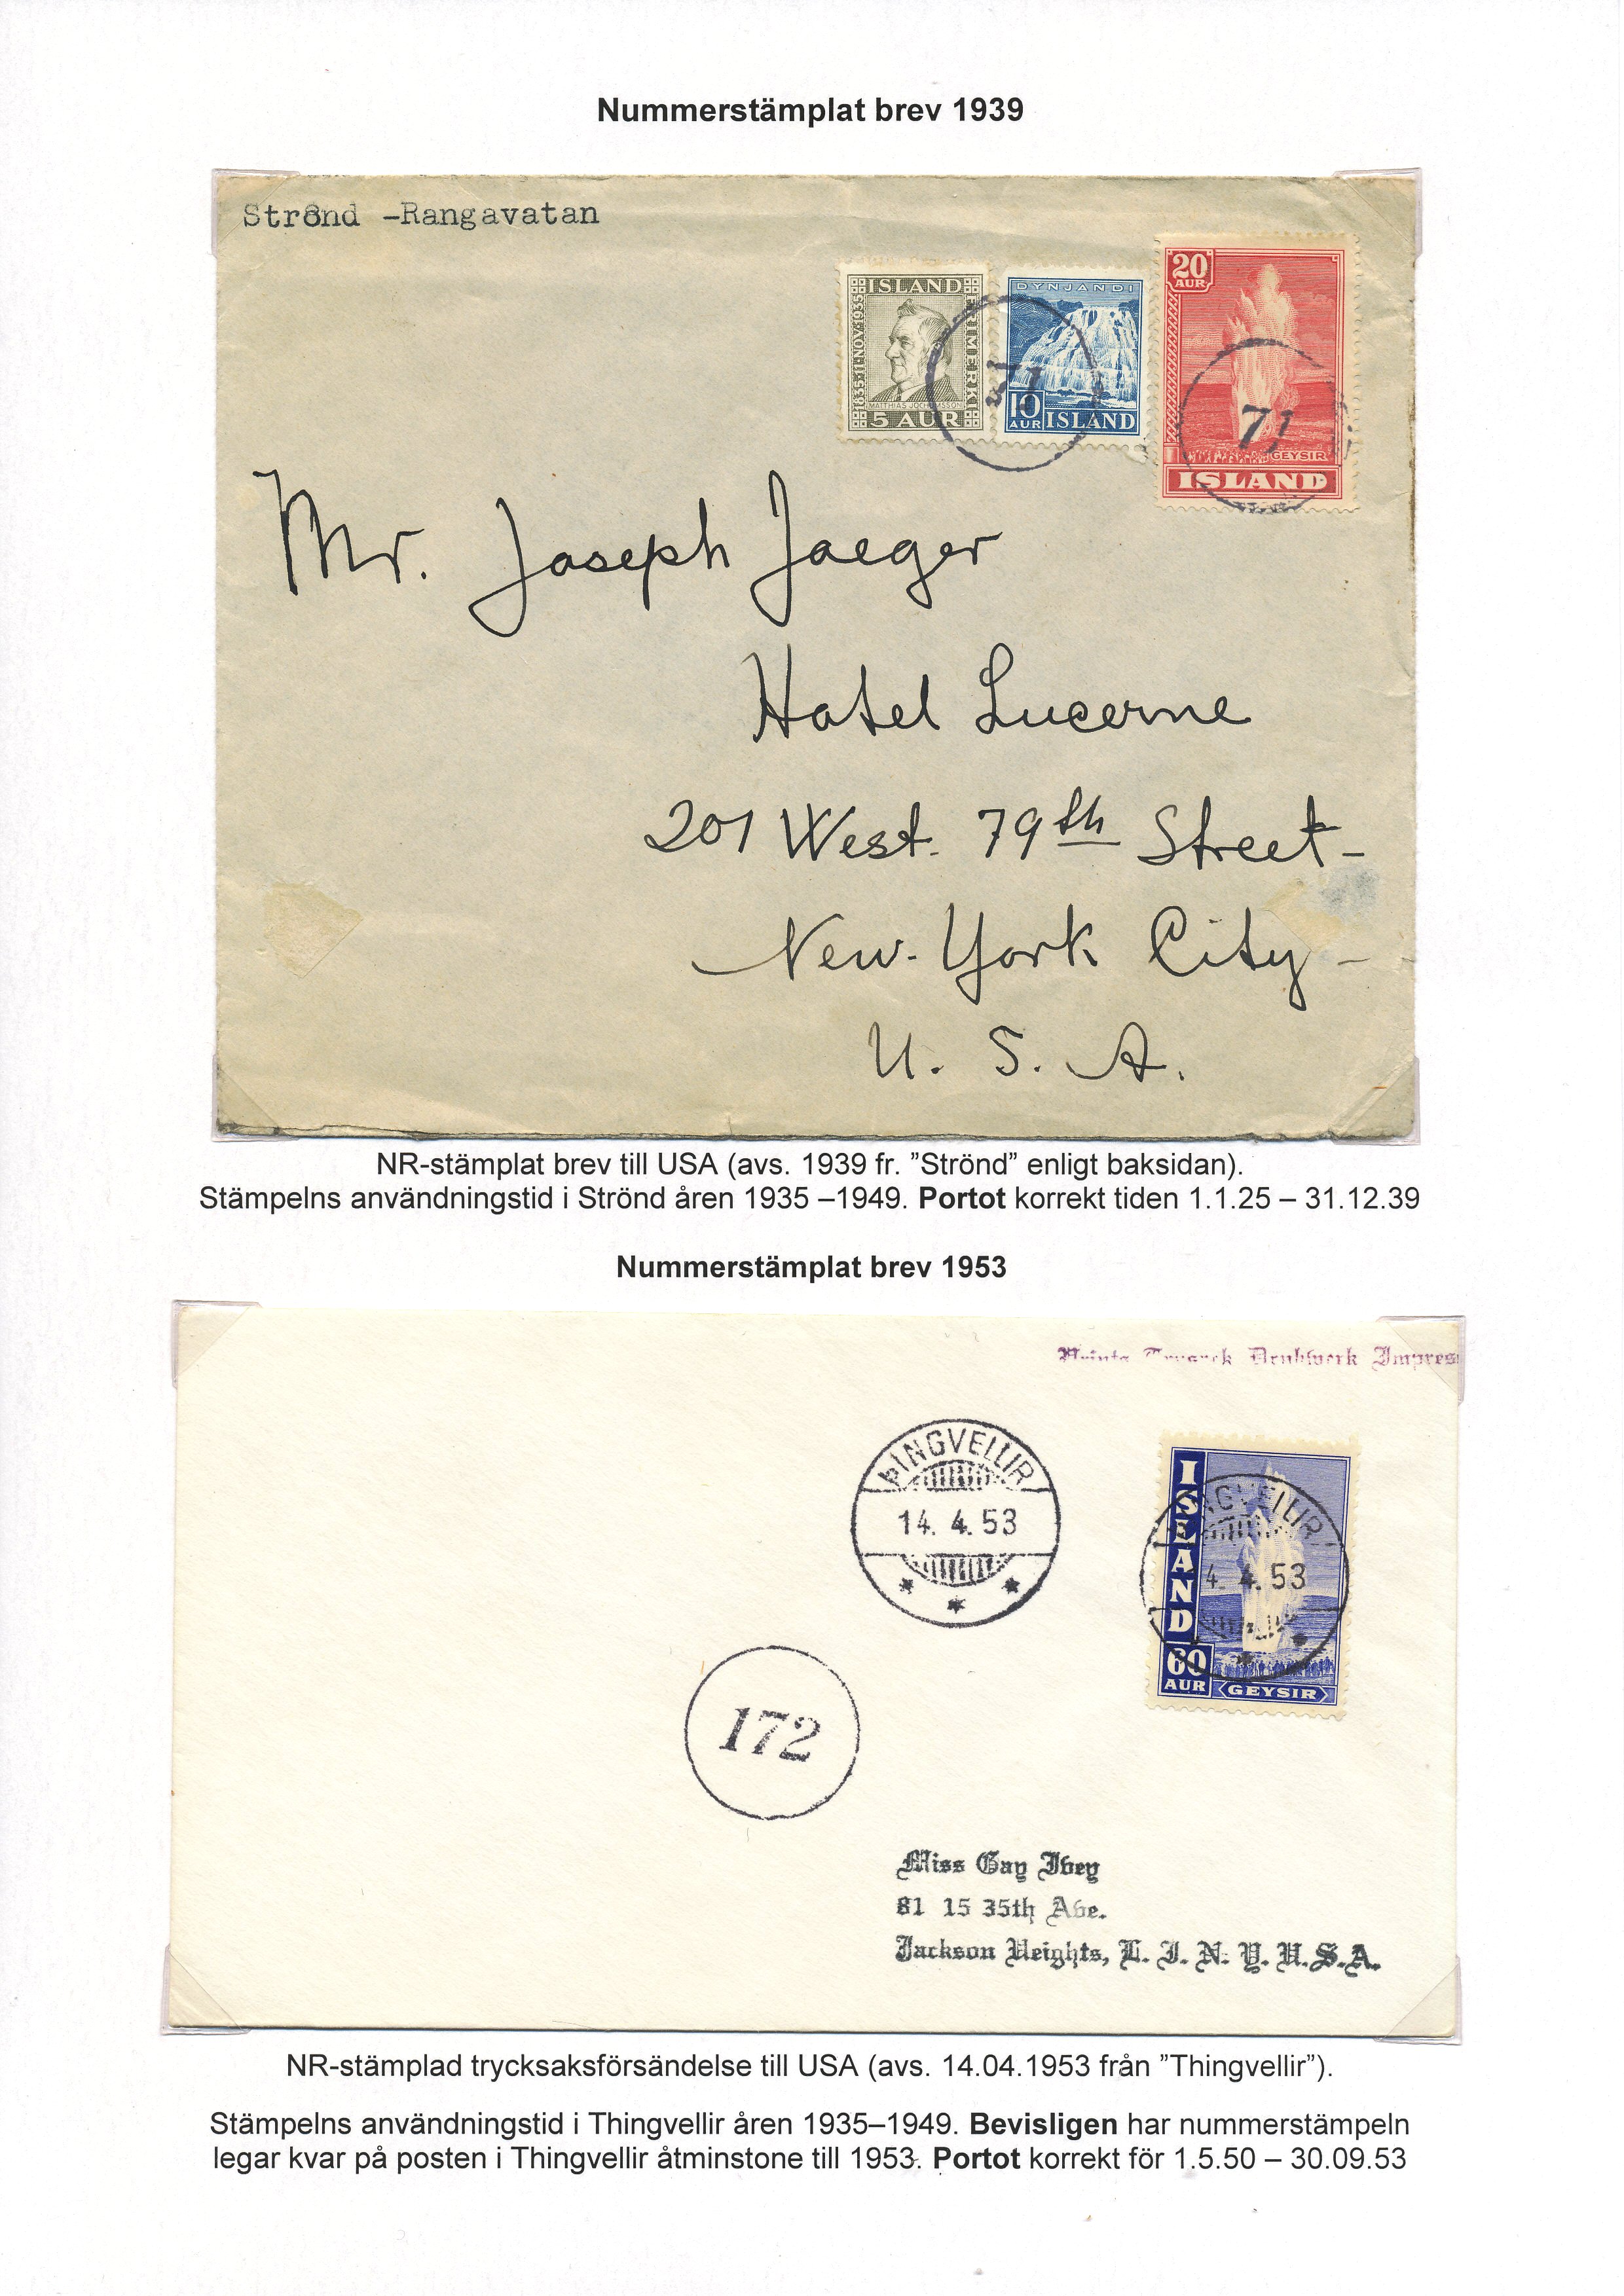 Nummerstämplat brev 1939
Strönd -Rangavatan
ISLAND
1835·11·NOV·1935
FRIMERKI
MATTHIAS JOCHUMSSON
5 AUR
DYNJANDI
10
AUR ISLAND
20
AUR
GEYSIR
ISLAND
71
71
Mr. Joseph Jaeger
Hotel Lucerne
201 West. 79th Street-
New-York City-
U. S. A.
NR-stämplat brev till USA (avs. 1939 fr. ”Strönd” enligt baksidan).
Stämpelns användningstid i Strönd åren 1935 –1949. Portot korrekt tiden 1.1.25 – 31.12.39
Nummerstämplat brev 1953
Drukwerk Impres
ÞINGVELLIR
14. 4. 53
ÍSLAND
60
AUR
GEYSIR
INGVELLIR
4. 4. 53
172
Miss Gay Ivey
81 15 35th Ave.
Jackson Heights, L. I. N. Y. U.S.A.
NR-stämplad trycksaksförsändelse till USA (avs. 14.04.1953 från ”Thingvellir”).
Stämpelns användningstid i Thingvellir åren 1935–1949. Bevisligen har nummerstämpeln
legar kvar på posten i Thingvellir åtminstone till 1953. Portot korrekt för 1.5.50 – 30.09.53